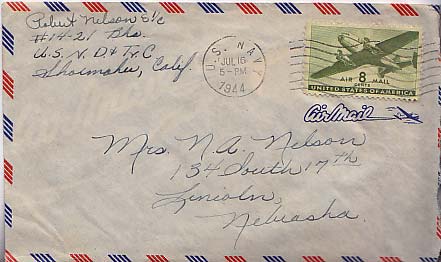 Robert Nelson S1/c
#14-21 Bks.
U.S.N.D. & Tr. C
Shoemaker, Calif.
U. S. NAVY
JUL 16
5-PM
1944
AIR MAIL
8
CENTS
UNITED STATES OF AMERICA
Air Mail
Mrs. N.A. Nelson
134 South 17th
Lincoln,
Nebraska.